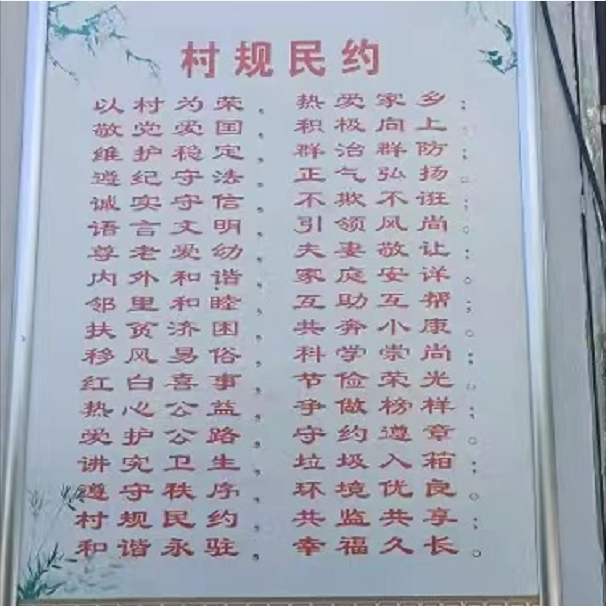 村规民约
以村为荣，热爱家乡；
敬党爱国，积极向上。
维护稳定，群治群防；
遵纪守法，正气弘扬。
诚实守信，不欺不诳；
语言文明，引领风尚。
尊老爱幼，夫妻敬让；
内外和谐，家庭安详。
邻里和睦，互助互帮；
扶贫济困，共奔小康。
移风易俗，科学崇尚；
红白喜事，节俭荣光。
热心公益，争做榜样；
爱护公路，守约遵章。
讲究卫生，垃圾入箱；
遵守秩序，环境优良。
村规民约，共监共享；
和谐永驻，幸福久长。